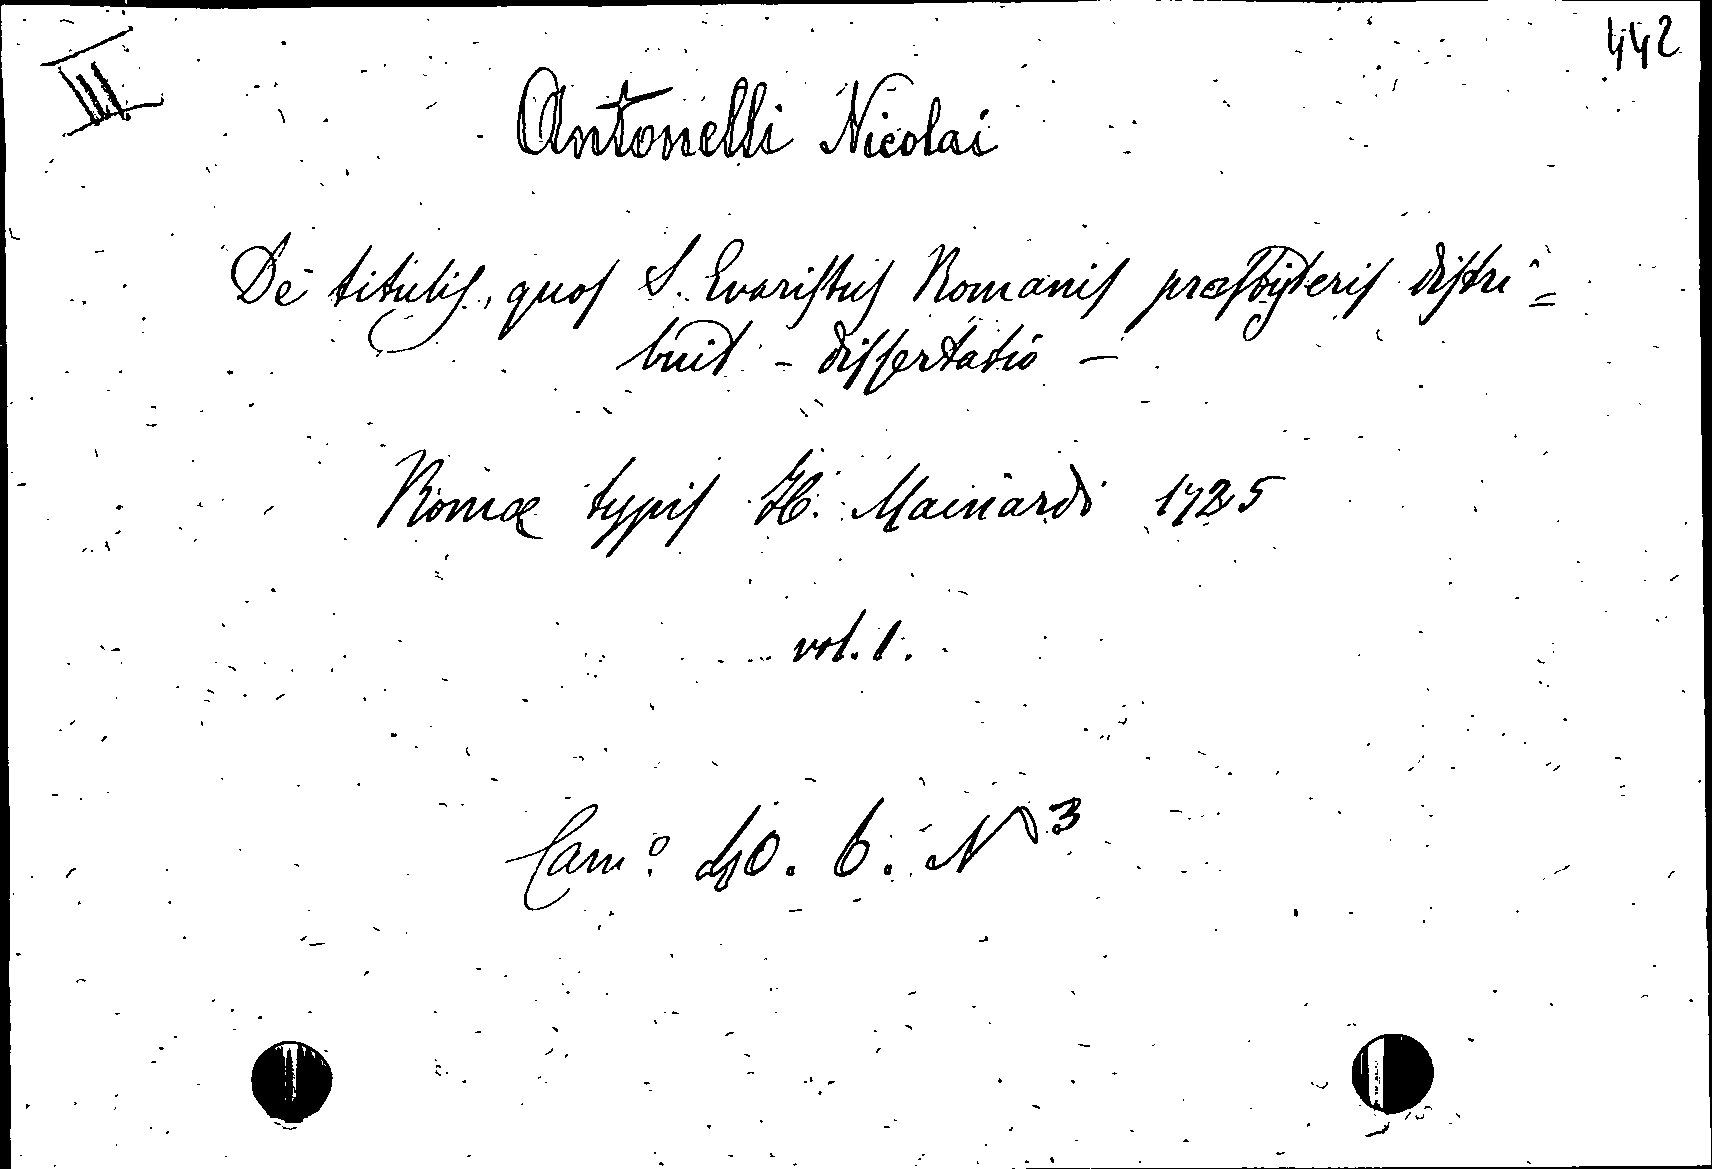 III
442
Antonelli Nicolai
De titulis, quos S. Evaristus Romanis præsbyteris distri=
buit - dissertatio -
Romæ typis H. Mainardi 1725
vol. 1.
Cam.º 40. 6. N 3